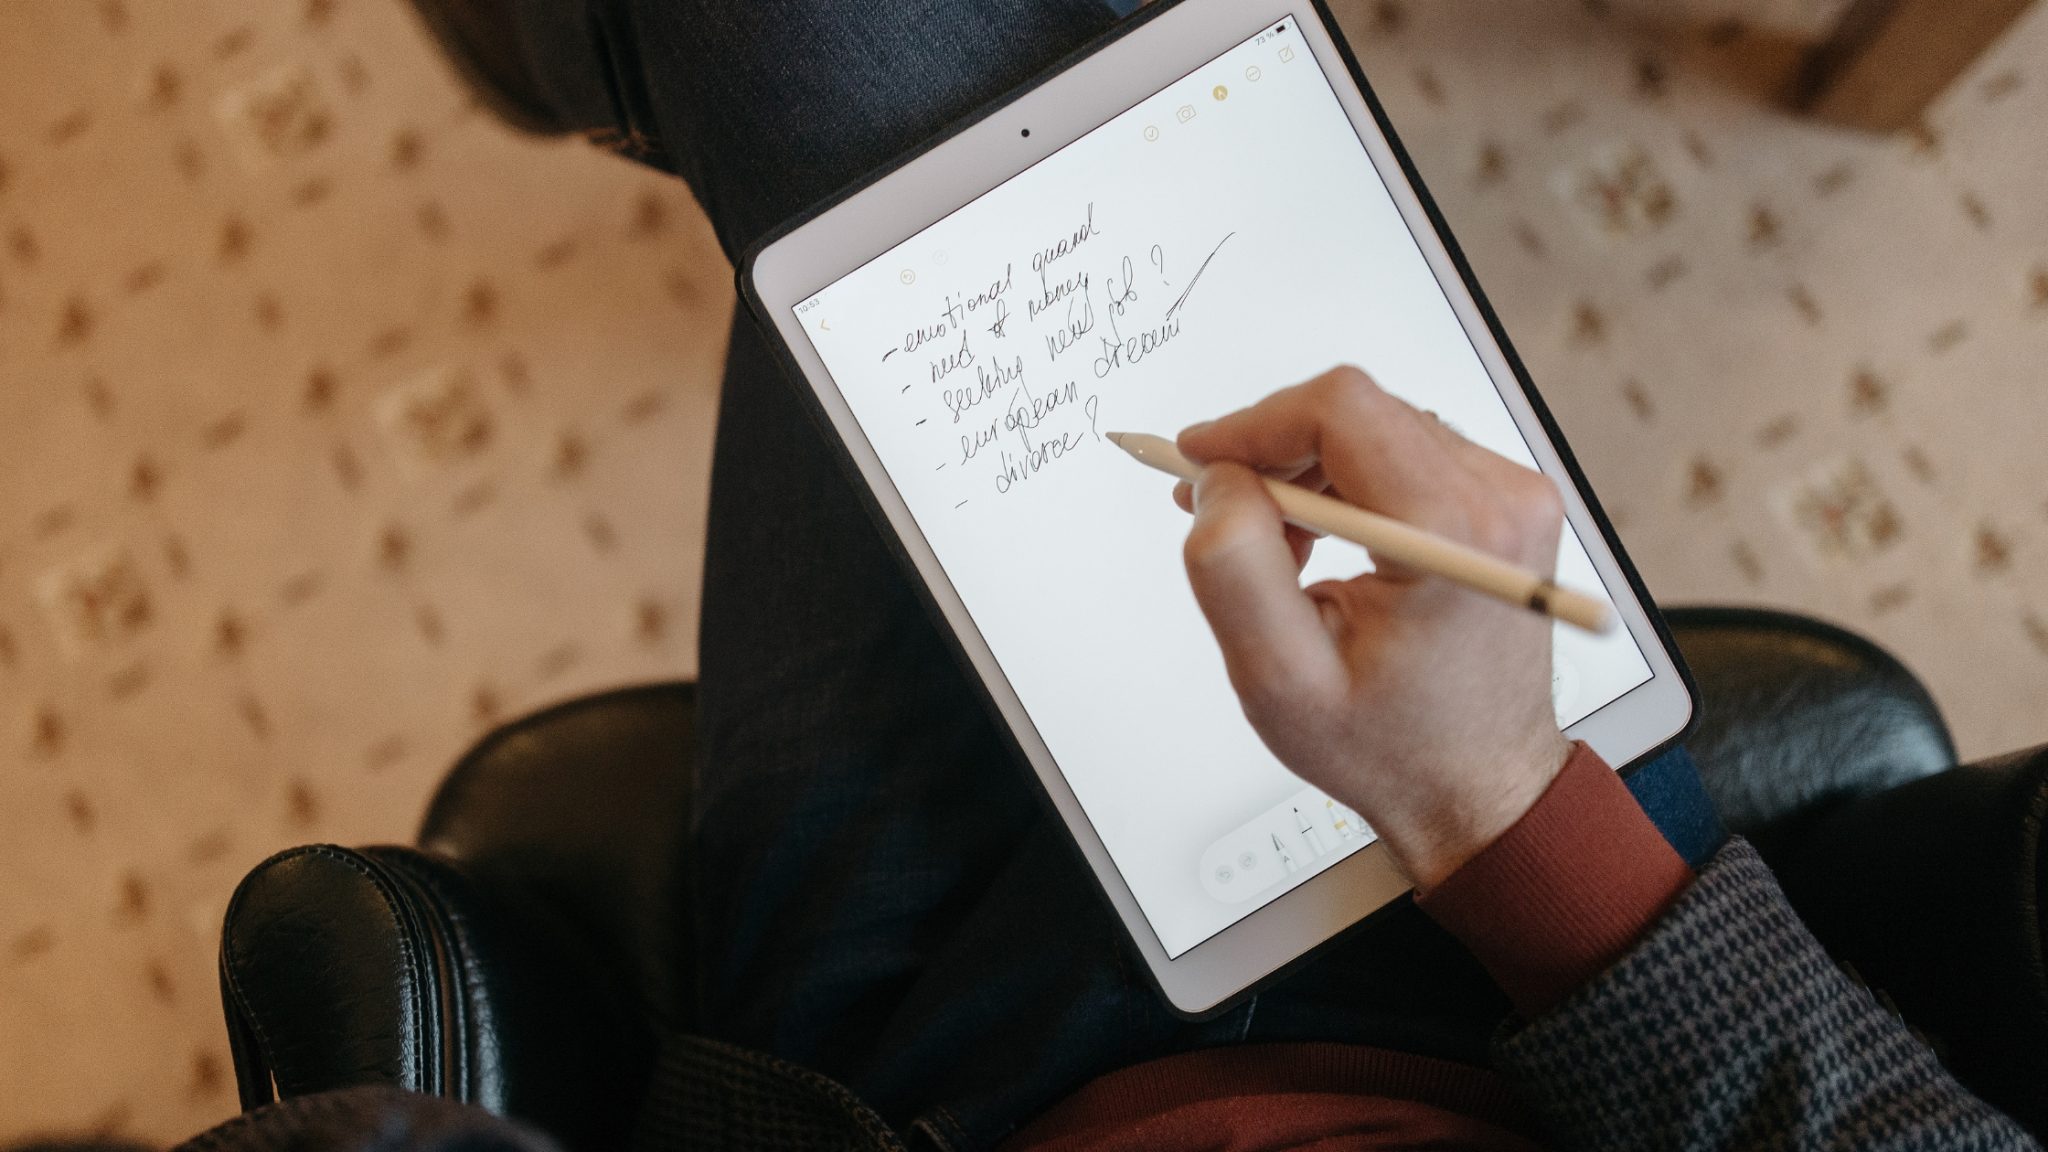 10:53
73 %
- emotional quand
- need of money
- seeking new job ?
- european dream ✓
- divorce ?